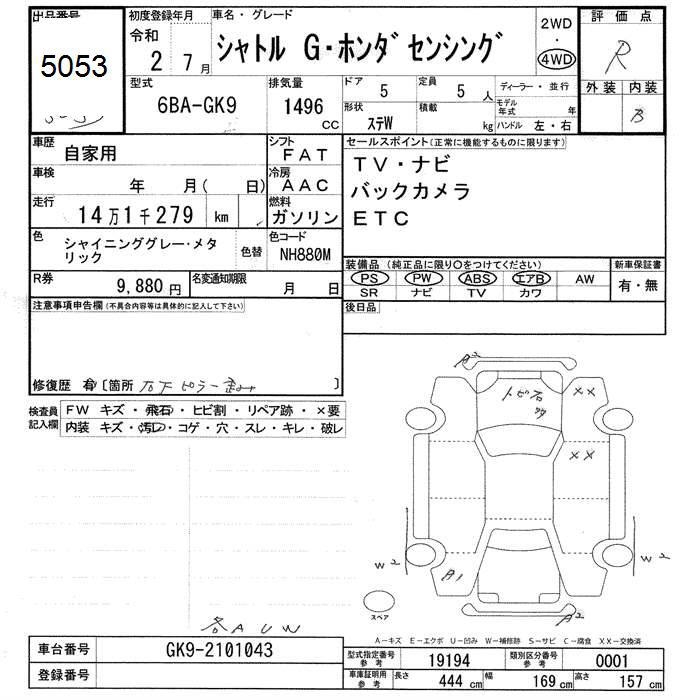 出品番号 5053
初度登録年月 令和 2 7 月
車名・グレード シャトル G・ホンダセンシング
2WD ・ 4WD
評価点 R
外装 内装 B
型式 6BA-GK9
排気量 1496 CC
ドア 5
定員 5 人
形状 ステW
積載 kg
ディーラー・並行
モデル年式 年
ハンドル 左・右
車歴 自家用
シフト FAT
セールスポイント(正常に機能するものに限ります)
車検 年 月( 日)
冷房 AAC
TV・ナビ
バックカメラ
ETC
走行 14万1千279 km
燃料 ガソリン
色 シャイニンググレー・メタリック
色替
色コード NH880M
装備品 (純正品に限り○をつけてください)
新車保証書
PS PW ABS エアB AW
有・無
SR ナビ TV カワ
R券 9,880 円
名変通知期限 月 日
後日品
注意事項申告欄(不具合内容等は具体的に記入して下さい)
修復歴 有 〔箇所 右下ピラー歪み 〕
検査員記入欄
FW キズ・飛石・ヒビ割・リペア跡・×要
内装 キズ・汚れ・コゲ・穴・スレ・キレ・破レ
A2
トビ石
××
××
W2
W2
A1
A2
スペア
各AUW
A-キズ E-エクボ U-凹み W-補修跡 S-サビ C-腐食 XX-交換済
車台番号 GK9-2101043
登録番号
型式指定番号 参考 19194
類別区分番号 参考 0001
車庫証明用 参考 長さ 444 cm 幅 169 cm 高さ 157 cm